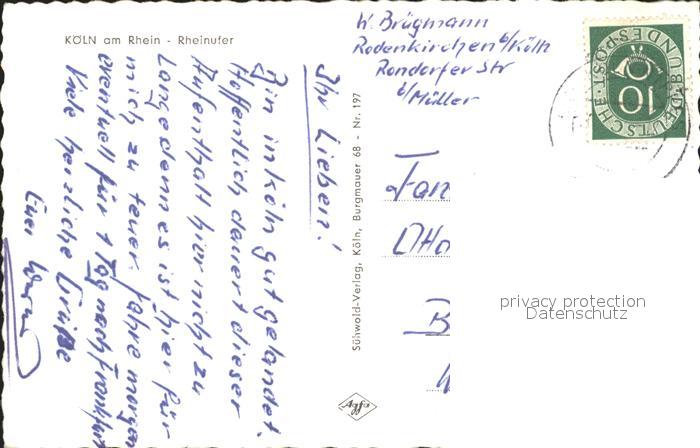 KÖLN am Rhein - Rheinufer
Ihr Lieben!
Bin in Köln gut gelandet
Hoffentlich dauert dieser
Aufenthalt hier nicht zu
Lange denn es ist hier für
mich zu teuer. Fahre morgen
eventuell für 1 Tag nach Frankfurt
Viele herzliche Grüße
Euer
Sühwold-Verlag, Köln, Burgmauer 68 - Nr. 197
Agfa
W. Brügmann
Rodenkirchen b/Köln
Rondorfer Str
b/Müller
Fam
Otto
B
DEUTSCHE BUNDESPOST
10
privacy protection
Datenschutz